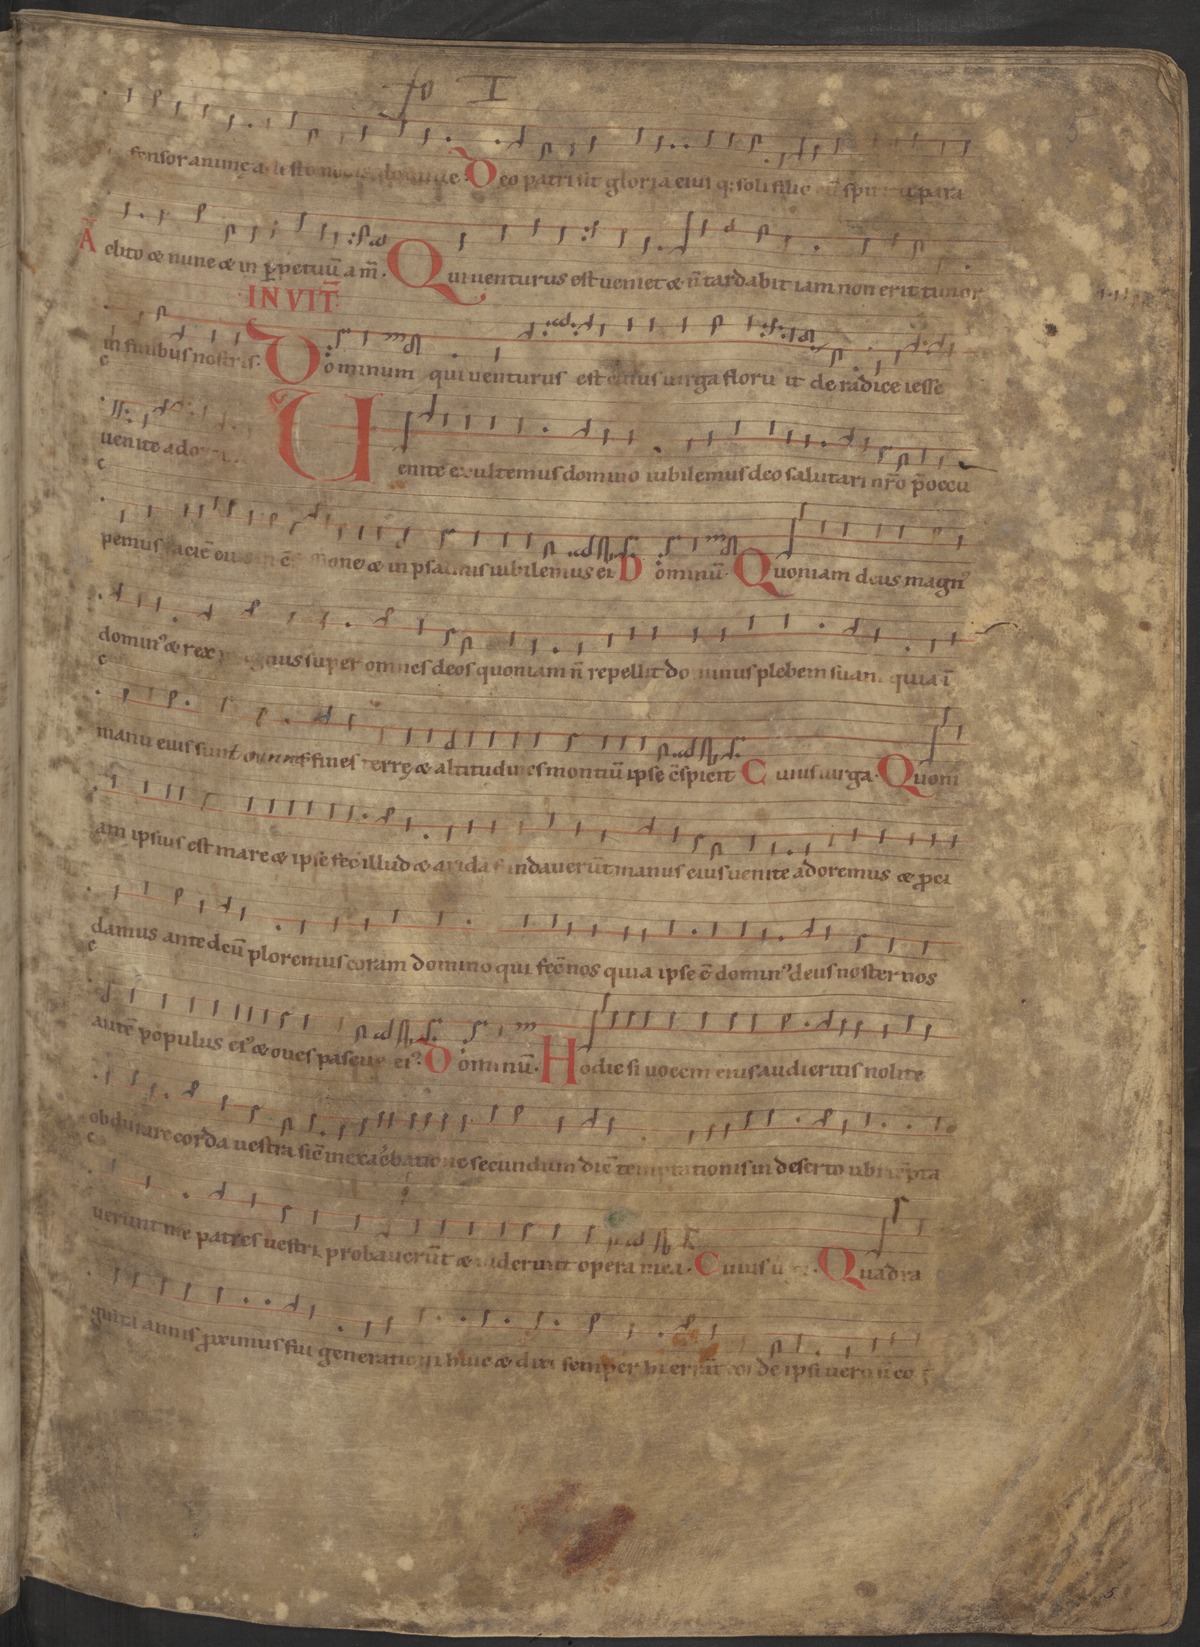 fo I
5
fensor animę domine. Deo patri sit gloria eius q; soli filio spu para
A clito & nunc & in ppetuū am̄. Qui venturus est veniet & n̄ tardabit iam non erit timor
INVIT̄
in finibus nostris. Dominum qui venturus est cuius virga floruit de radice iesse
venite ado Uenite exultemus domino iubilemus deo salutari nr̄o p̄occu
pemus faciē eius in & in psalmis iubilemus ei Dominū. Quoniam deus magnꝰ
dominꝰ & rex super omnes deos quoniam n̄ repellit dominus plebem suam quia ī
manu eius sunt omnes fines terrę & altitudines montiū ipse c̄spicit Cuius virga. Quoni
am ipsius est mare & ipse fec illud & arida fundaverūt manus eius venite adoremus & p̄ci
damus ante deū ploremus coram domino qui fec̄ nos quia ipse ē dominꝰ deus noster nos
autē populus eiꝰ & oves pascue eiꝰ. Dominū. Hodie si vocem eius audieritis nolite
obdurare corda vestra sic̄ in exacerbatione secundum diē temptationis in deserto ubi tēpta
verunt me patres vestri probaverūt & viderunt opera mea. Cuius. Quadra
ginta annis p̄ximus fui generationi huic & dixi semper hi errāt corde ipsi vero n̄ co
5